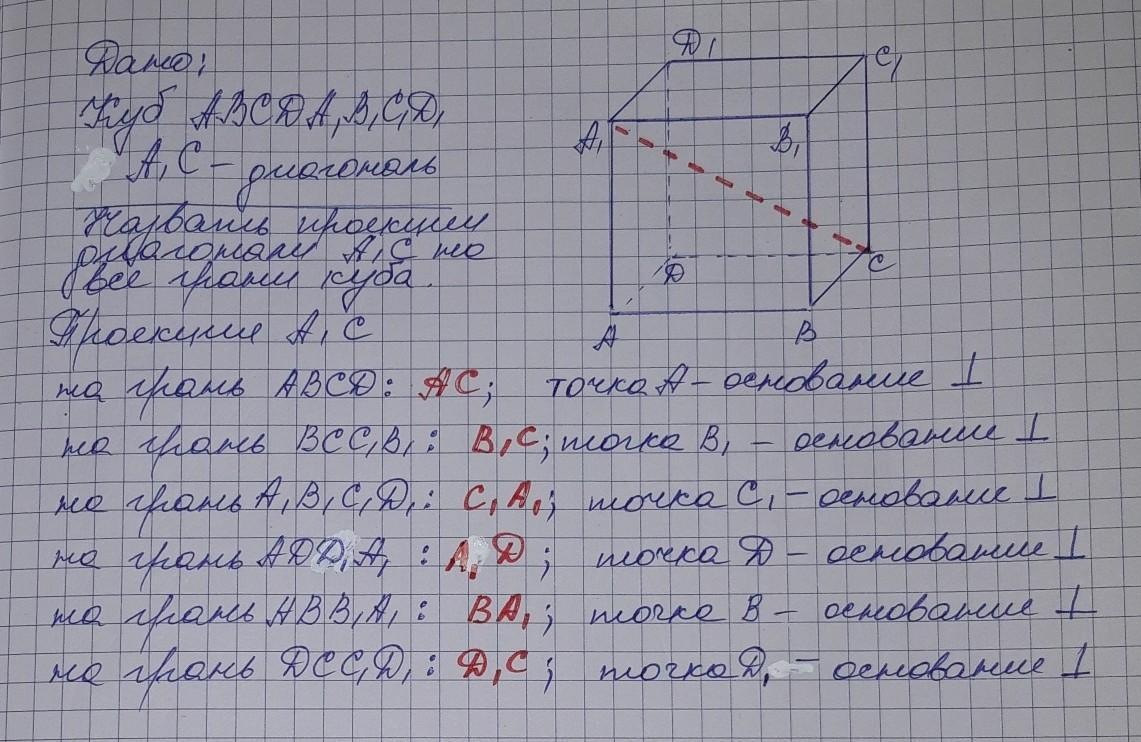 Дано:
Куб ABCDA₁B₁C₁D₁
A₁C – диагональ
Назвать проекции
диагонали A₁C на
все грани куба.
Проекции A₁C
на грань ABCD: AC; точка A – основание ⊥
на грань BCC₁B₁: B₁C; точка B₁ – основание ⊥
на грань A₁B₁C₁D₁: C₁A₁; точка C₁ – основание ⊥
на грань ADD₁A₁: A₁D; точка D – основание ⊥
на грань ABB₁A₁: BA₁; точка B – основание ⊥
на грань DCC₁D₁: D₁C; точка D₁ – основание ⊥
D₁
C₁
A₁
B₁
D
C
A
B